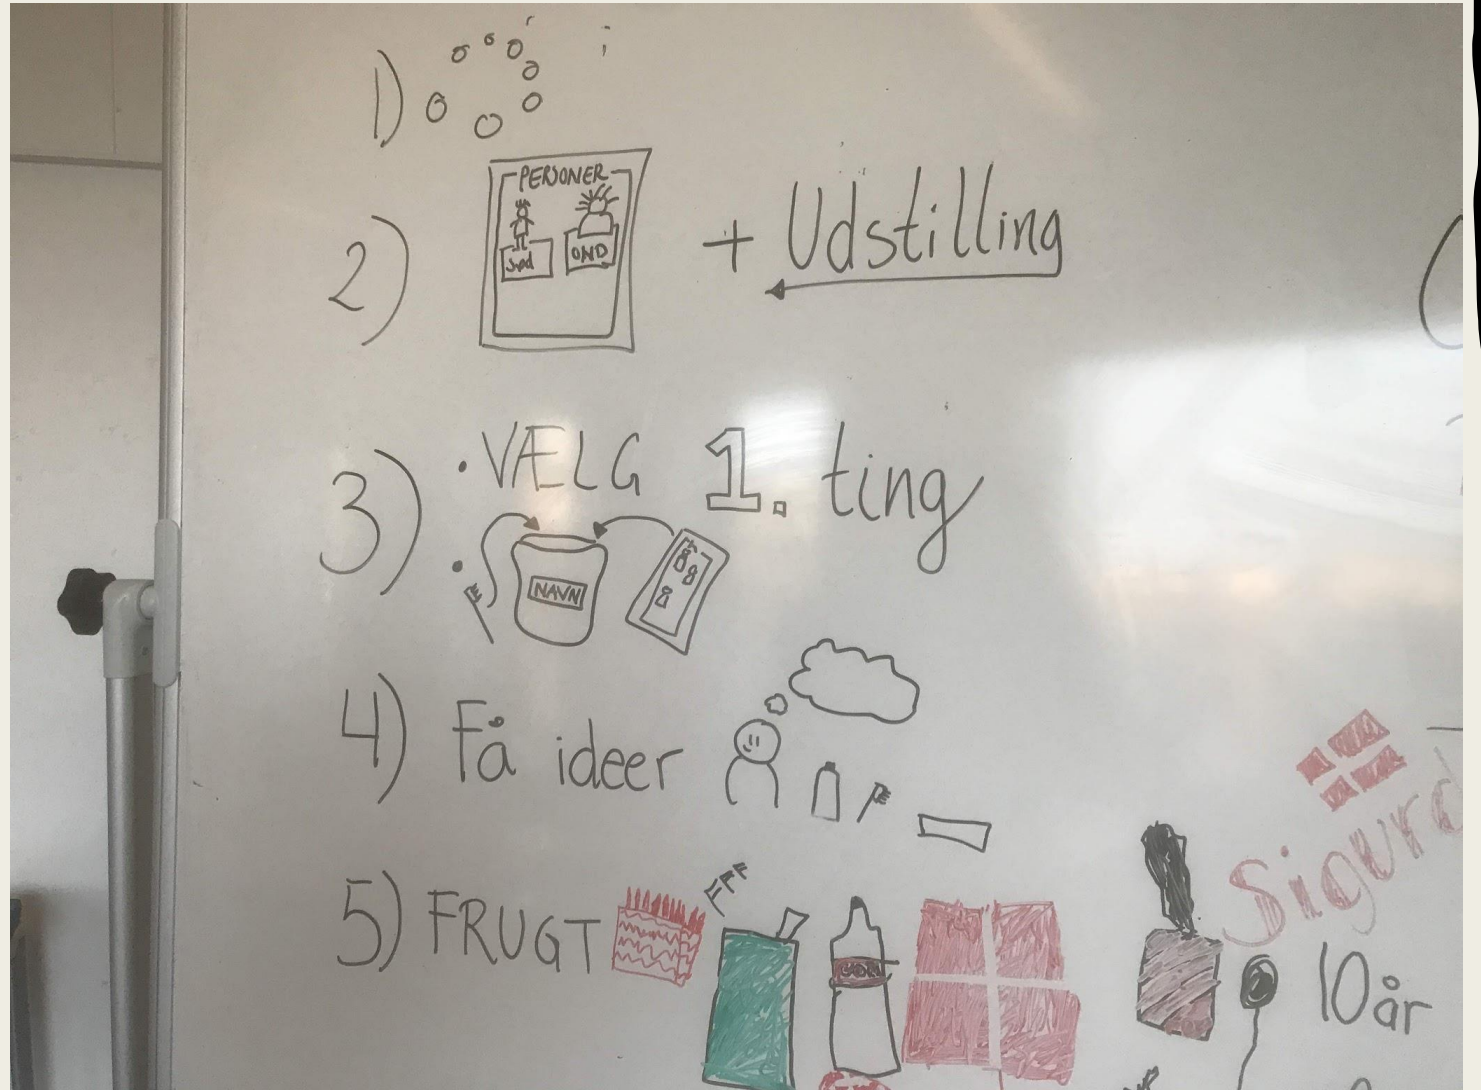 1)
2) PERSONER
OND
+ Udstilling
3) • VÆLG 1. ting
• NAVN
4) Få ideer
5) FRUGT
Sigurd
10 år